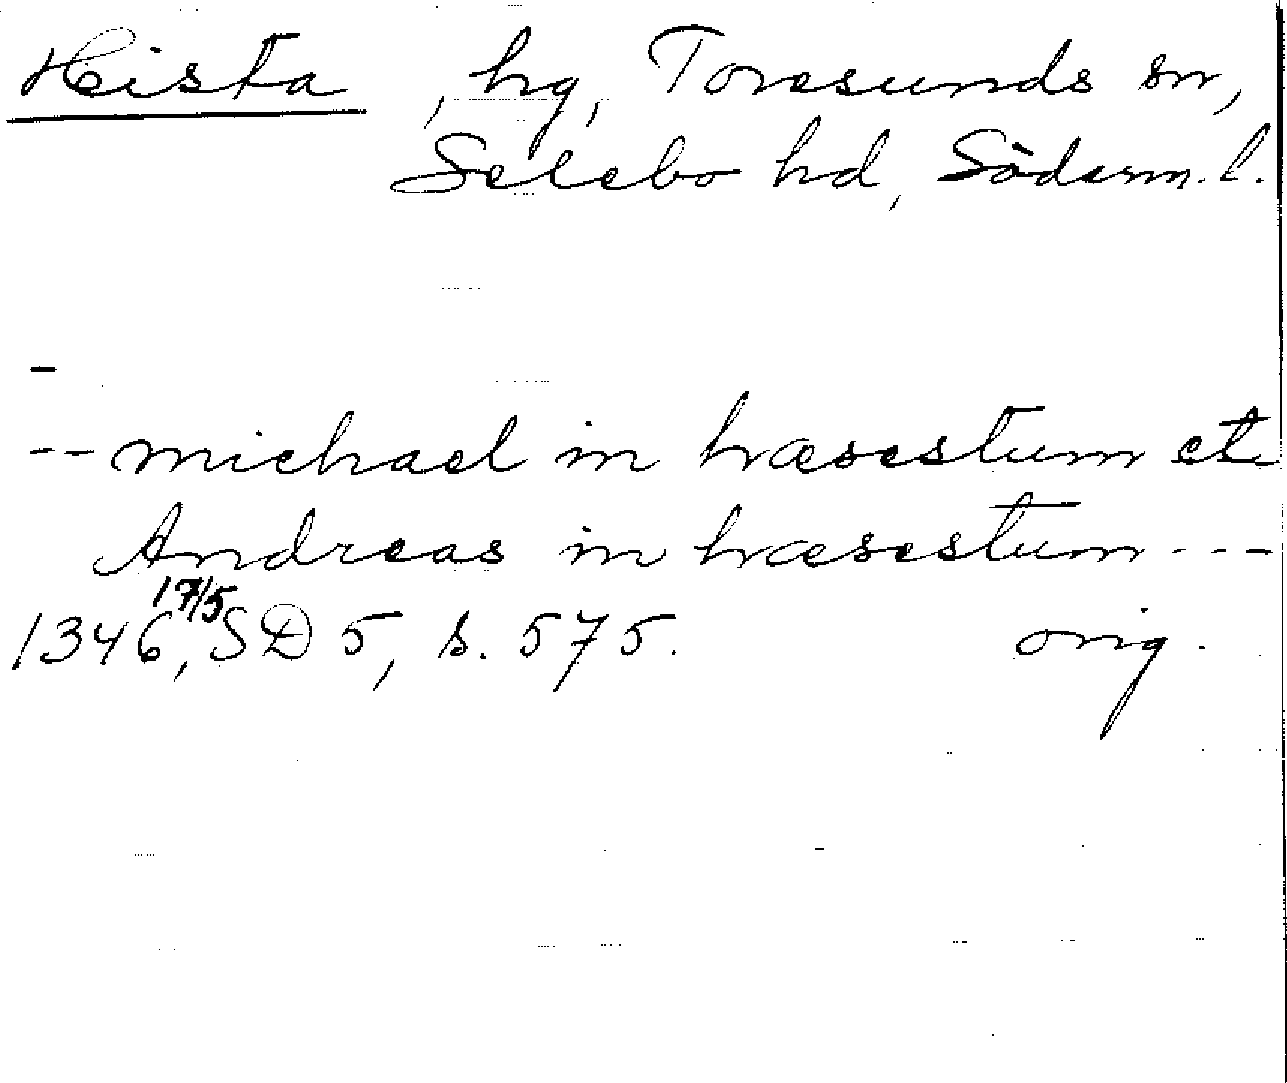 Hista, hg, Toresunds sn,
Selebo hd, Söderm. l.
-
-- michael in hæsestum et
Andreas in hæsestum ---
1346 17/5, SD 5, s. 575. orig.